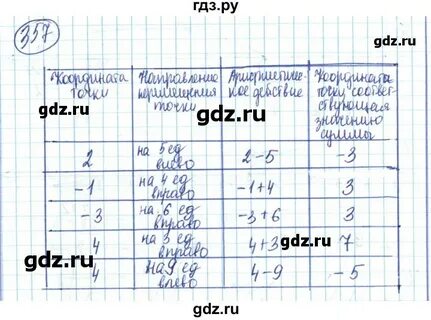 гдз.ру
357
Координата точки | Направление перемещения точки | Арифметическое действие | Координата точки, соответствующая значению суммы
2 | на 5 ед влево | 2-5 | -3
-1 | на 4 ед вправо | -1+4 | 3
-3 | на 6 ед вправо | -3+6 | 3
4 | на 3 ед вправо | 4+3 | 7
4 | на 9 ед влево | 4-9 | -5
gdz.ru gdz.ru
gdz.ru gdz.ru
gdz.ru gdz.ru
gdz.ru gdz.ru